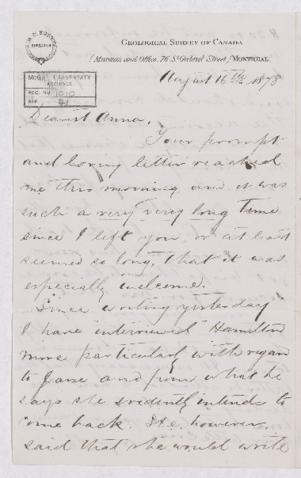 GEOLOGICAL SURVEY OF CANADA
Museum and Office, 76 St. Gabriel Street, MONTREAL
August 16th 1878
McGILL UNIVERSITY
ARCHIVES
ACC. NO. 1010
REF.
Dearest Anna,
Your prompt
and loving letter reached
me this morning and it was
such a very very long time
since I left you, or at least
seemed so long, that it was
especially welcome.
Since writing yesterday
I have interviewed Hamilton
more particularly with regard
to Jane and from what he
says she evidently intends to
come back. He, however,
said that she would write